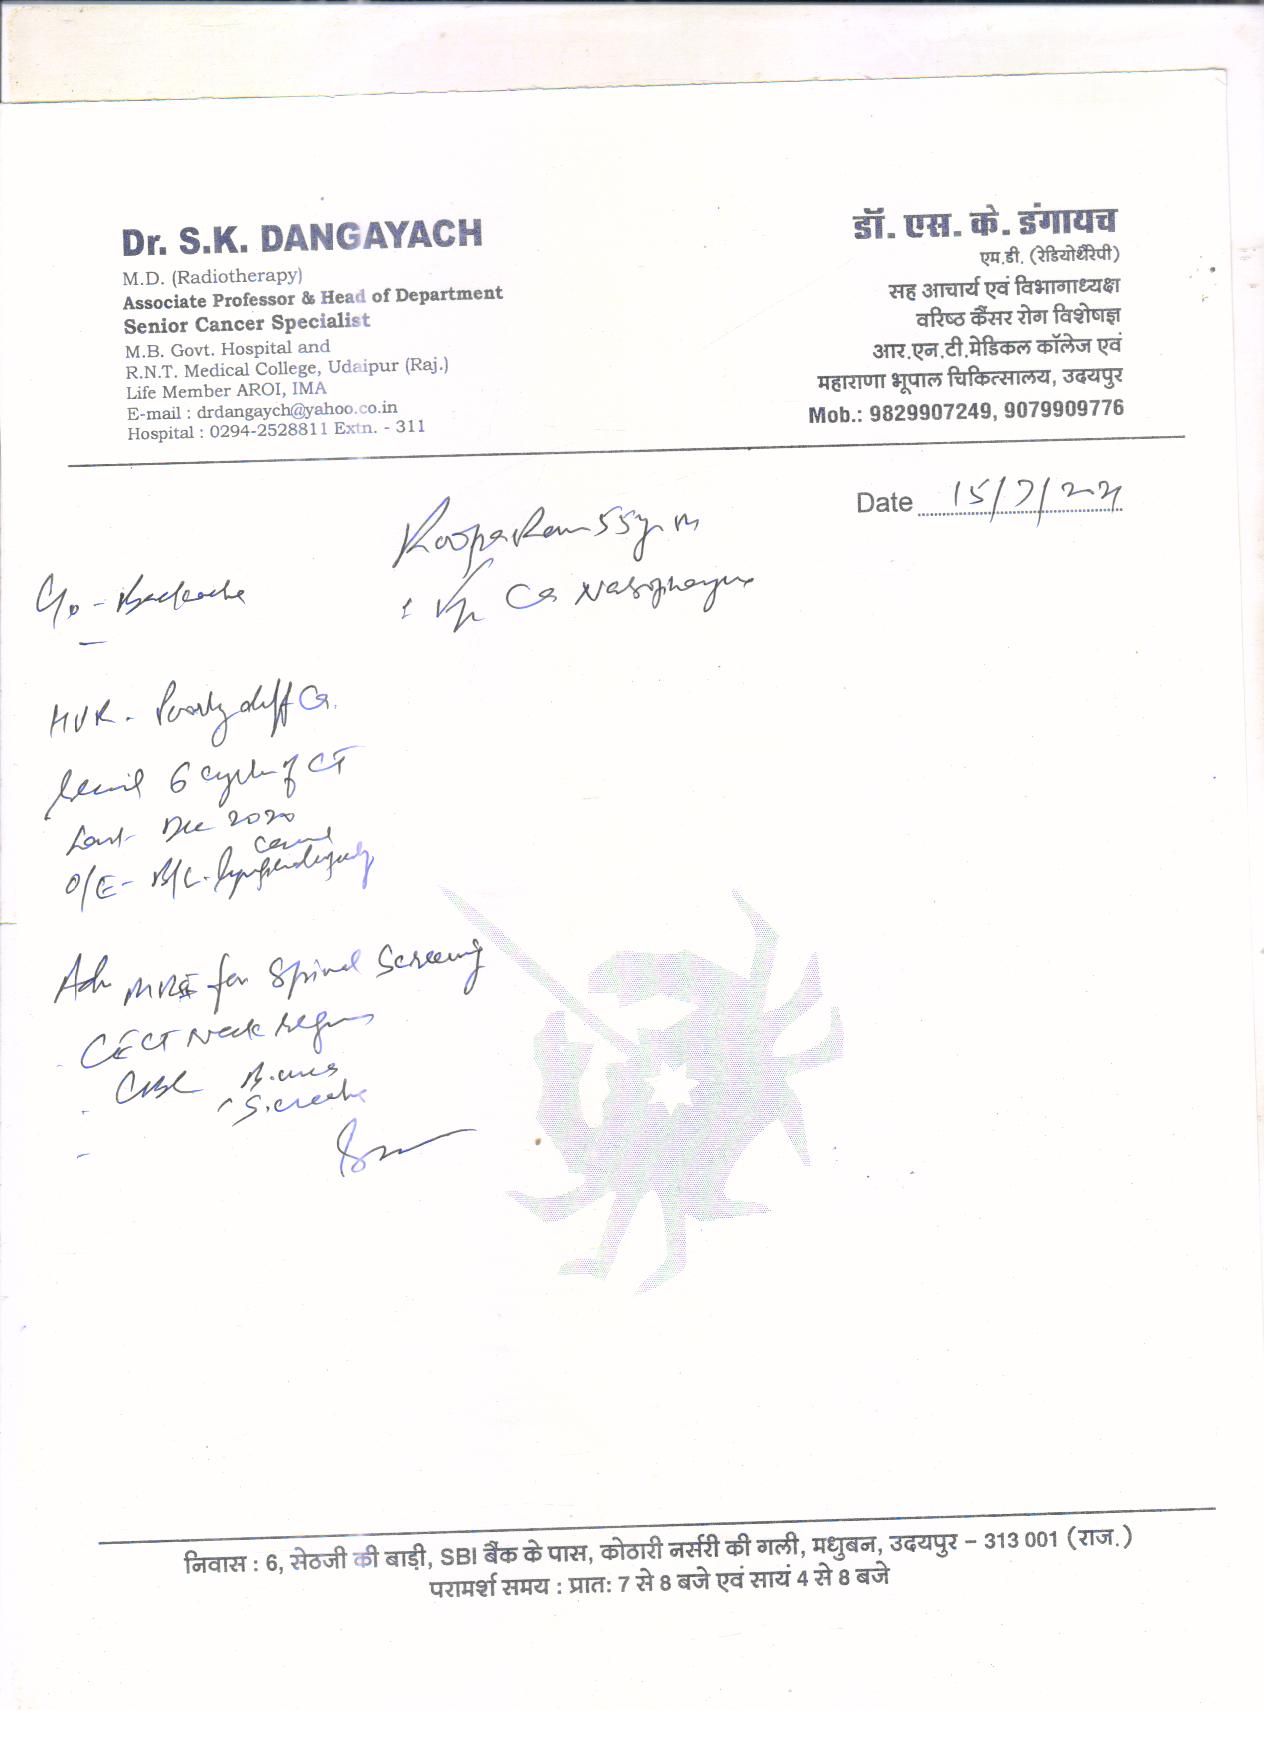 Dr. S.K. DANGAYACH
M.D. (Radiotherapy)
Associate Professor & Head of Department
Senior Cancer Specialist
M.B. Govt. Hospital and
R.N.T. Medical College, Udaipur (Raj.)
Life Member AROI, IMA
E-mail : drdangaych@yahoo.co.in
Hospital : 0294-2528811 Extn. - 311
डॉ. एस. के. डंगायच
एम.डी. (रेडियोथैरेपी)
सह आचार्य एवं विभागाध्यक्ष
वरिष्ठ कैंसर रोग विशेषज्ञ
आर.एन.टी.मेडिकल कॉलेज एवं
महाराणा भूपाल चिकित्सालय, उदयपुर
Mob.: 9829907249, 9079909776
Date 15/7/2021
55y m
Ca Nasopharynx
C/o - Backache
Poorly diff Ca.
6 cycle of CT
Last Dec 2020
Cervical
O/E - B/L lymphadenopathy
Adv MRI for Spinal Screening
CECT Neck region
CBC
S. creat
निवास : 6, सेठजी की बाड़ी, SBI बैंक के पास, कोठारी नर्सरी की गली, मधुबन, उदयपुर – 313 001 (राज.)
परामर्श समय : प्रातः 7 से 8 बजे एवं सायं 4 से 8 बजे